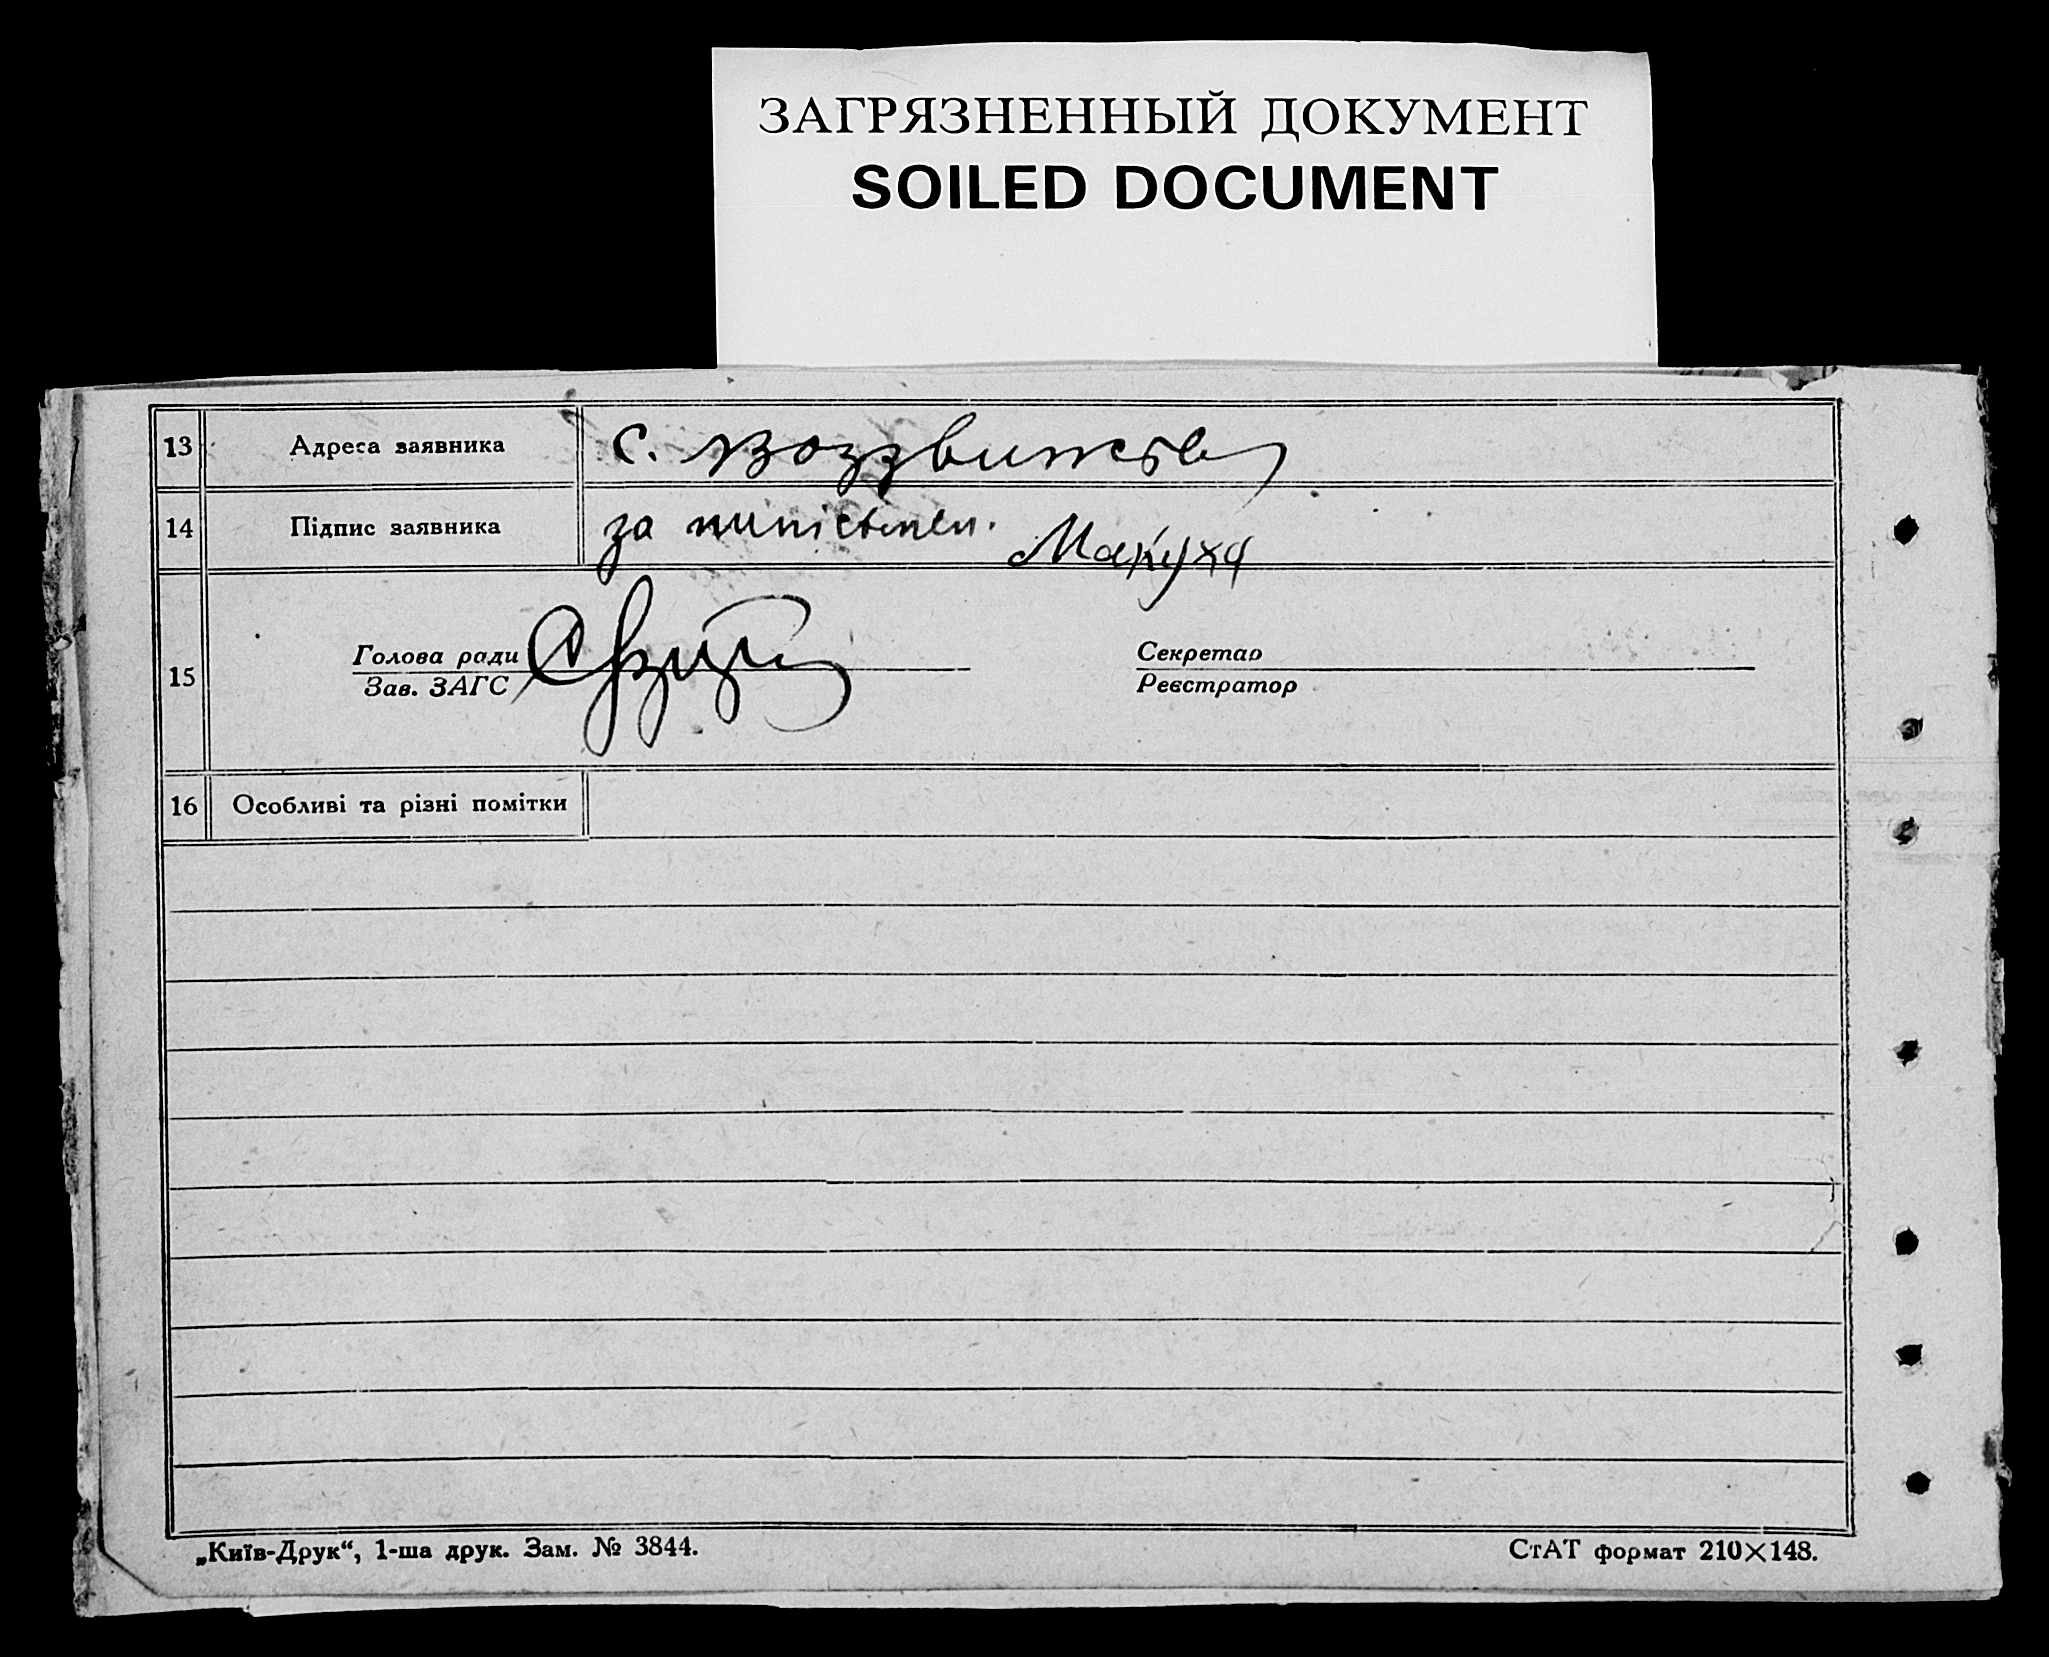 ЗАГРЯЗНЕННЫЙ ДОКУМЕНТ
SOILED DOCUMENT
13 Адреса заявника с. Воззвижств
14 Підпис заявника за Макуха
15 Голова ради Секретар
Зав. ЗАГС Реєстратор
16 Особливі та різні помітки
„Київ-Друк“, 1-ша друк. Зам. № 3844. СтАТ формат 210×148.